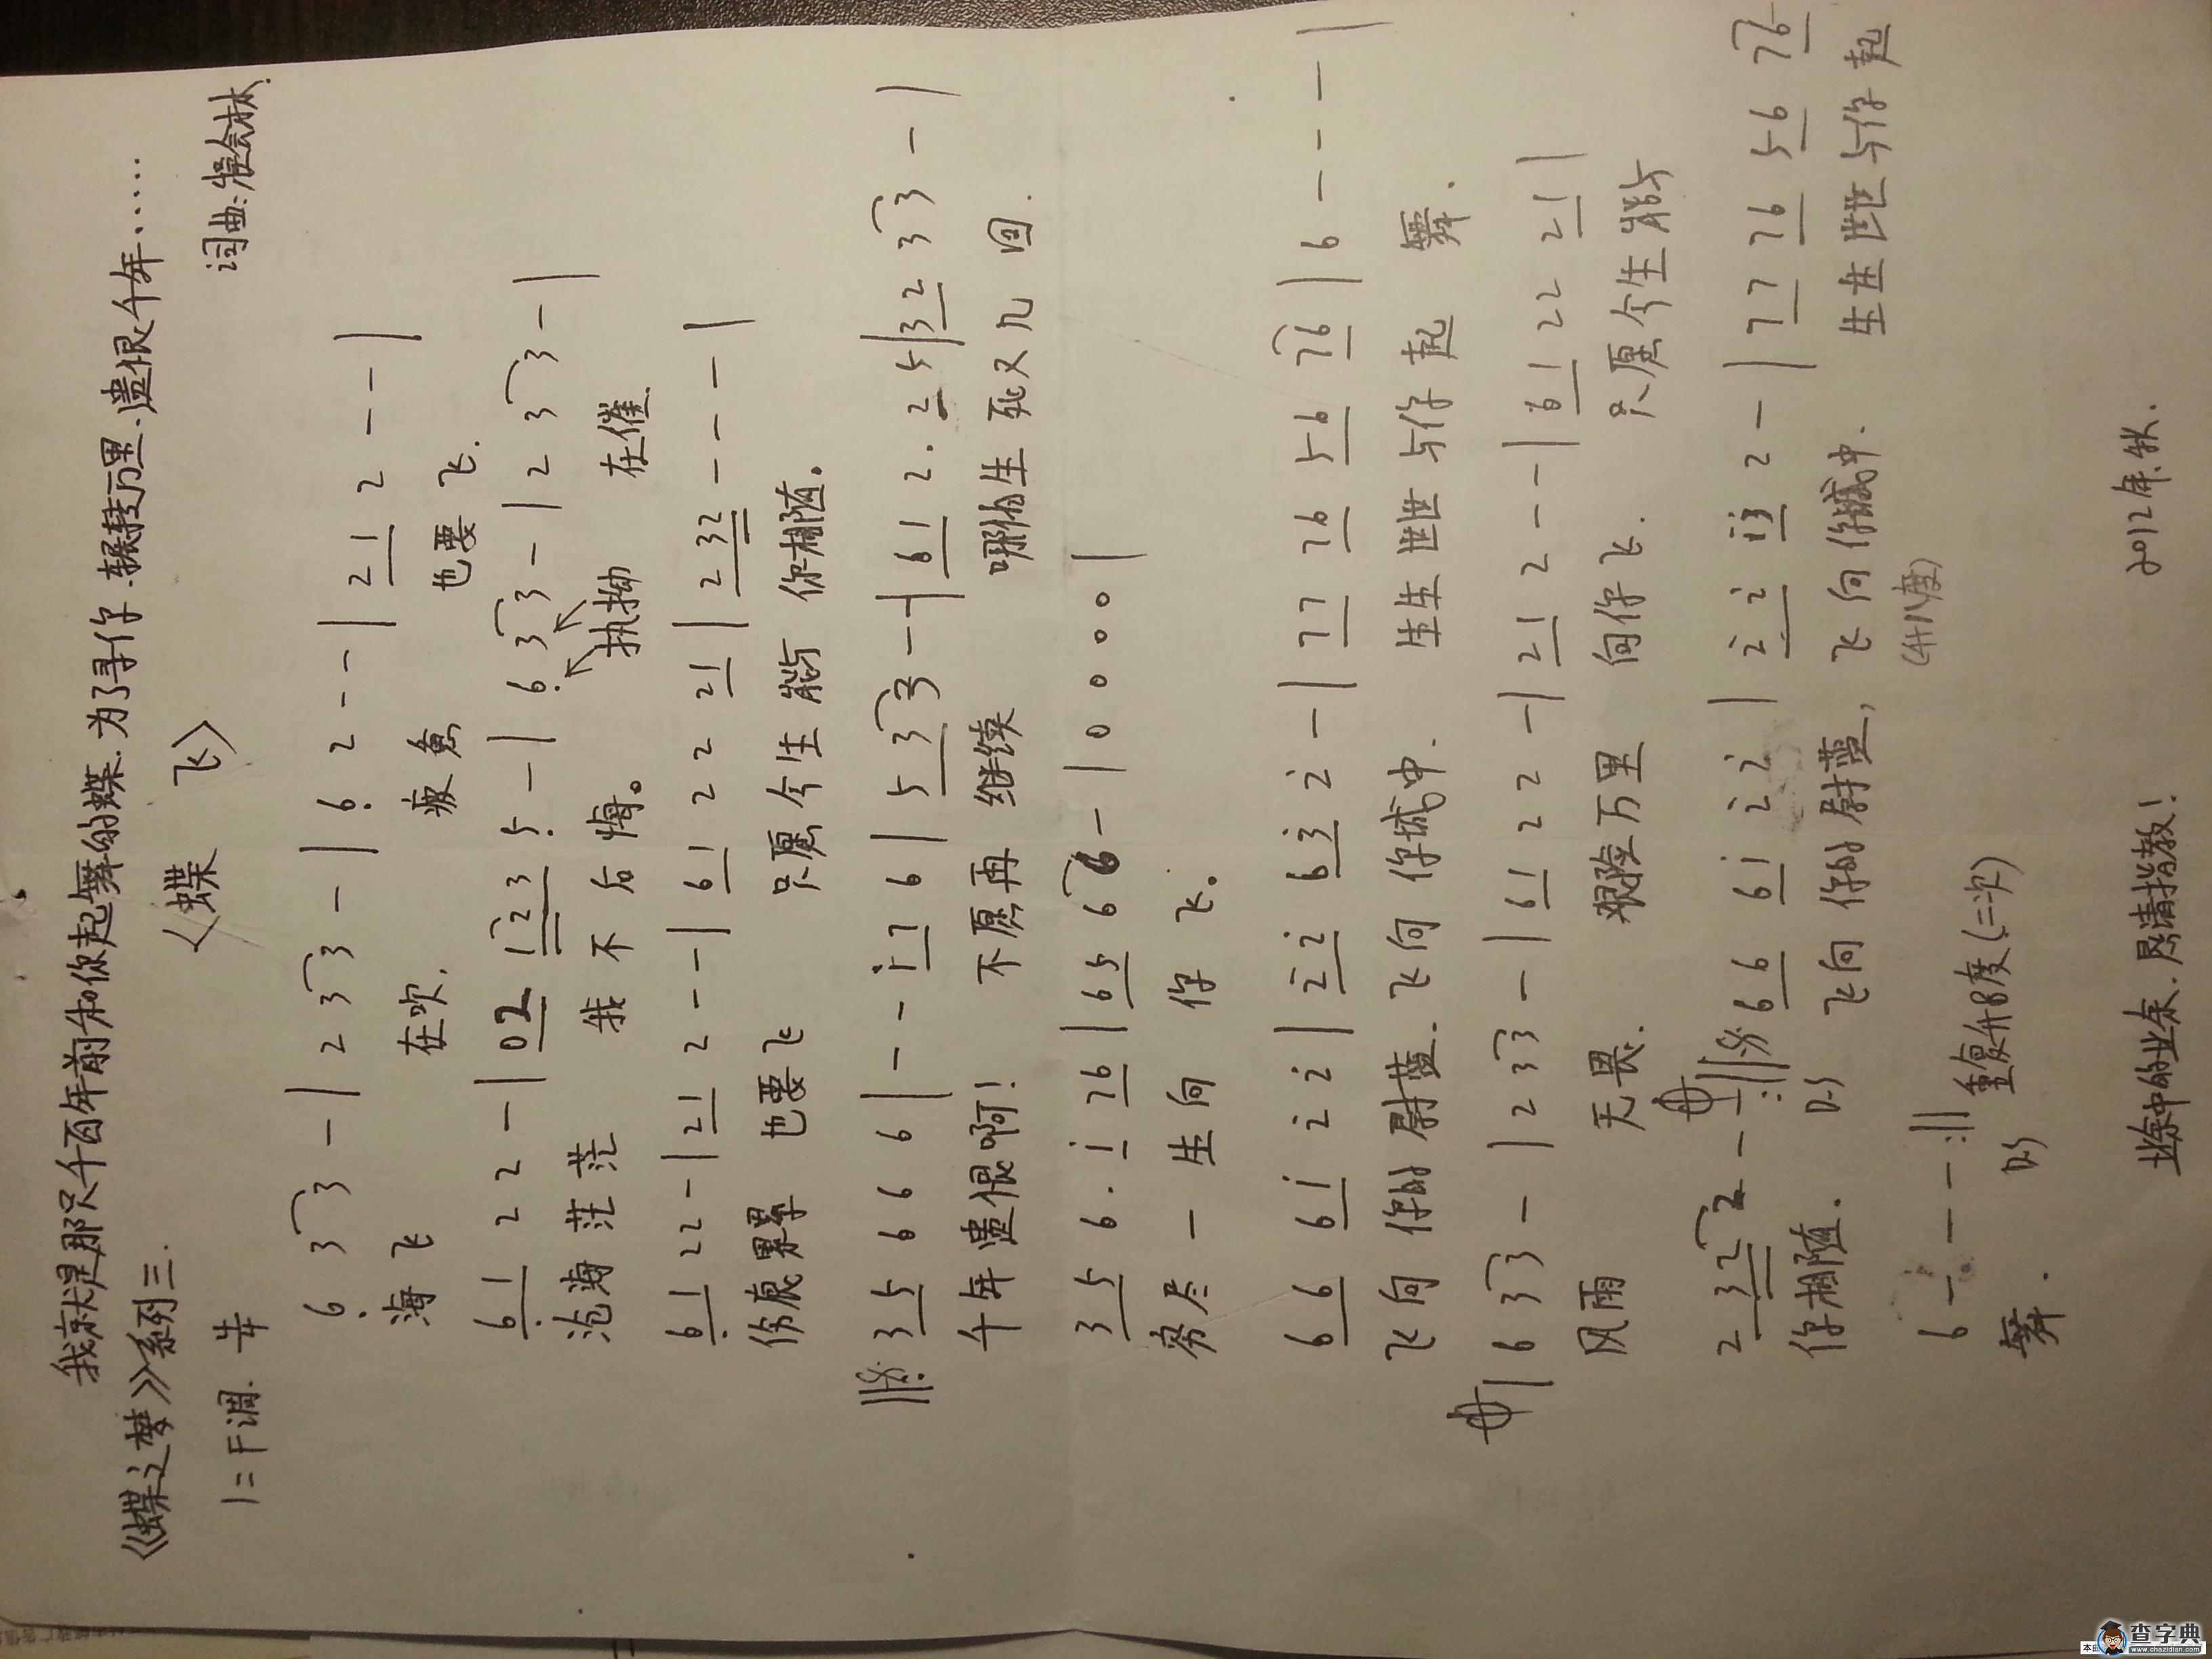 我就是那只千百年前和你起舞的蝶.为了寻你.辗转万里.遗恨千年……
《蝶之梦》系列三.
〈蝶 飞〉
1=F调.
词曲:
6̣ 3 3 - | 2 3 3 - | 6̣ 2 - - | 2 1 2 - - |
海飞 在吹. 疲惫 也要 飞.
6̣ 1 2 2 - | 0 2 1 2 3 5̣ - | 6̣ 3 3 - | 2 3 3 - |
沧海 茫 茫 我 不 后 悔。 执拗 在催.
6̣ 1 2 2 - | 2 1 2 - - | 6 1 2 2 2 1 | 2 3 2 - - - |
伤痕累累 也要飞 只愿今生 能与 你相随。
3 5 6 6 6 | - - i 7 6 | 5 3 3 - - | 6 1 2 . 2 5 | 3 2 3 3 - |
千年遗恨啊! 不愿再 继续 哪怕生 死又几 回.
3 5 6 . i 7 6 | 6 5 6 6 - | 0 0 0 0 |
穷尽 一 生 向 你 飞。
6 6 6 i 2̇ 2̇ | 2̇ 2̇ 6 3̇ 2̇ - | 7 7 7 6 5 6 7 6 | 6 - - - |
飞向 你的 尉蓝. 飞向 你城中. 生生 世世 与你 起 舞.
| 6 3 3 - | 2 3 3 - | 6 1 2 2 - | 2 1 2 - - | 6 1 2 2 2 1 |
风雨 无畏. 艰险万里 向你飞. 只愿今生能与
2 3 2 2 - - :|| 6 6 6 i 2̇ 2̇ | 2̇ 2̇ i 3̇ 2 - | 7 7 7 6 5 6 7 6
你相随. D.S 飞向 你的尉蓝, 飞向你城中. 生生世世与你 起
(升八度)
6 - - - :|| 重复升8度(二次)
舞. D.S
业余中的业余.恳请指教! 2012年.秋.
查字典
www.chazidian.com